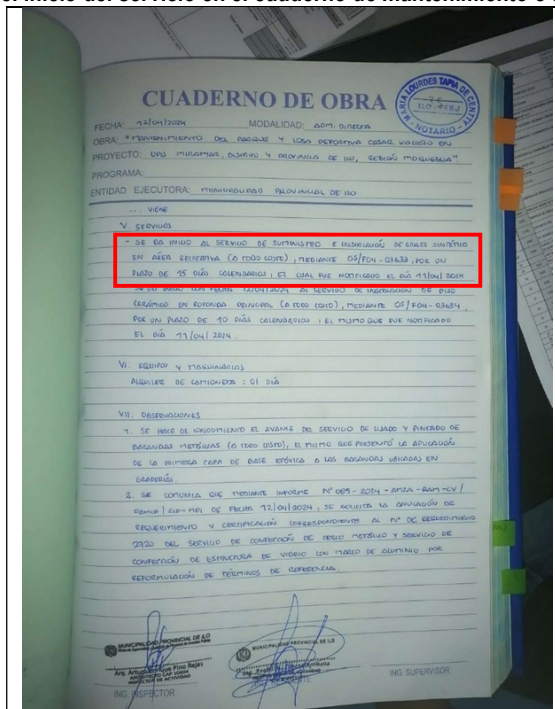 el inicio del servicio en el cuaderno de mantenimiento
CUADERNO DE OBRA
MARIA LOURDES TAPIA DE CENTTY
ILO - PERÚ
NOTARIO
FECHA: 12/04/2024 MODALIDAD: ADM. DIRECTA
OBRA: "MANTENIMIENTO DEL PARQUE Y LOSA DEPORTIVA CESAR VALLEJO EN
PROYECTO: UPIS MIRAMAR, DISTRITO Y PROVINCIA DE ILO, REGIÓN MOQUEGUA"
PROGRAMA:
ENTIDAD EJECUTORA: MUNICIPALIDAD PROVINCIAL DE ILO
... VIENE
V. SERVICIOS
- SE DA INICIO AL SERVICIO DE SUMINISTRO E INSTALACIÓN DE GRASS SINTÉTICO
EN ÁREA RECREATIVA (A TODO COSTO), MEDIANTE OS/F04-03633, POR UN
PLAZO DE 15 DÍAS CALENDARIOS; EL CUAL FUE NOTIFICADO EL DÍA 11/04/2024
SE DA INICIO CON FECHA 12/04/2024 AL SERVICIO DE INSTALACIÓN DE PISO
CERÁMICO EN ROTONDA PRINCIPAL (A TODO COSTO), MEDIANTE OS/F04-03634,
POR UN PLAZO DE 10 DÍAS CALENDARIOS; EL MISMO QUE FUE NOTIFICADO
EL DÍA 11/04/2024.
VI. EQUIPOS Y MAQUINARIAS
ALQUILER DE CAMIONETA : 01 DÍA
VII. OBSERVACIONES
1. SE HACE DE CONOCIMIENTO EL AVANCE DEL SERVICIO DE LIJADO Y PINTADO DE
BARANDAS METÁLICAS (A TODO COSTO), EL MISMO QUE PRESENTÓ LA APLICACIÓN
DE LA PRIMERA CAPA DE BASE EPÓXICA A LAS BARANDAS UBICADAS EN
GRADERÍAS.
2. SE COMUNICA QUE MEDIANTE INFORME N° 089-2024-AMZA-RAM-CV/
FECHA 12/04/2024, SE SOLICITA LA ANULACIÓN DE
REQUERIMIENTO Y CERTIFICACIÓN CORRESPONDIENTE AL N° DE REQUERIMIENTO
2720 DEL SERVICIO DE CONFECCIÓN DE CERCO METÁLICO Y SERVICIO DE
CONFECCIÓN DE ESTRUCTURA DE VIDRIO CON MARCO DE ALUMINIO POR
REFORMULACIÓN DE TÉRMINOS DE REFERENCIA.
MUNICIPALIDAD PROVINCIAL DE ILO
MUNICIPALIDAD PROVINCIAL DE ILO
Pino Rejas
ING. INSPECTOR
ING. SUPERVISOR